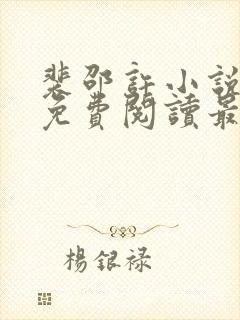 裴邵許小說
免費閱讀最
楊銀禄